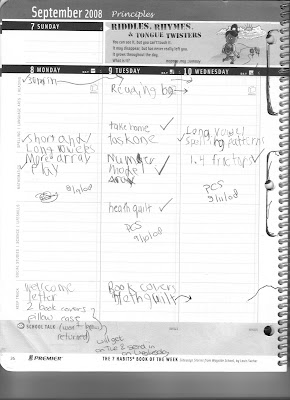 September 2008 Principles
7 SUNDAY
RIDDLES, RHYMES,
& TONGUE TWISTERS
You can see it, but you can't touch it.
It may disappear, but has never really left you.
It grows throughout the day.
What is it?
8 MONDAY
9 TUESDAY
10 WEDNESDAY
Reading
take home
task one
Short and
Long vowels
Long vowel
spelling patterns
More array
play
Number
model
array
1.4
9/10/08
PCS
9/10/08
health quilt
PCS
9/10/08
Welcome
letter
2 book covers
pillow case
returned)
Book covers
Health quilt
SCHOOL TALK
will get
on Tue & send in
on Wednesday
26
PREMIER
THE 7 HABITS® BOOK OF THE WEEK